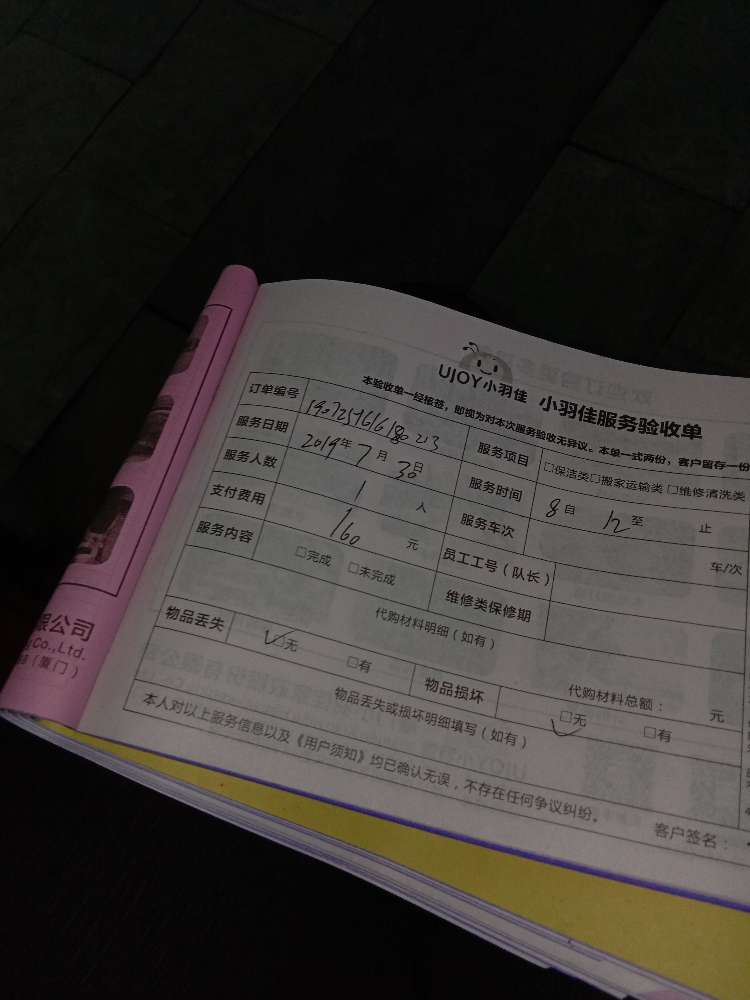 UJOY小羽佳 小羽佳服务验收单
本验收单一经接签，即视为对本次服务验收无异议。本单一式两份，客户留存一份
订单编号
服务项目 □保洁类□搬家运输类 □维修清洗类
服务日期 2019年 7月 30日
服务时间 8自 12至 止
服务人数 1 人
服务车次 车/次
支付费用 160 元
员工工号（队长）
服务内容 □完成 □未完成
维修类保修期
代购材料明细（如有）
代购材料总额： 元
物品丢失 ☑无 □有
物品损坏 ☑无 □有
物品丢失或损坏明细填写（如有）
本人对以上服务信息以及《用户须知》均已确认无误，不存在任何争议纠纷。
客户签名：
限公司
Co.,Ltd.
（厦门）